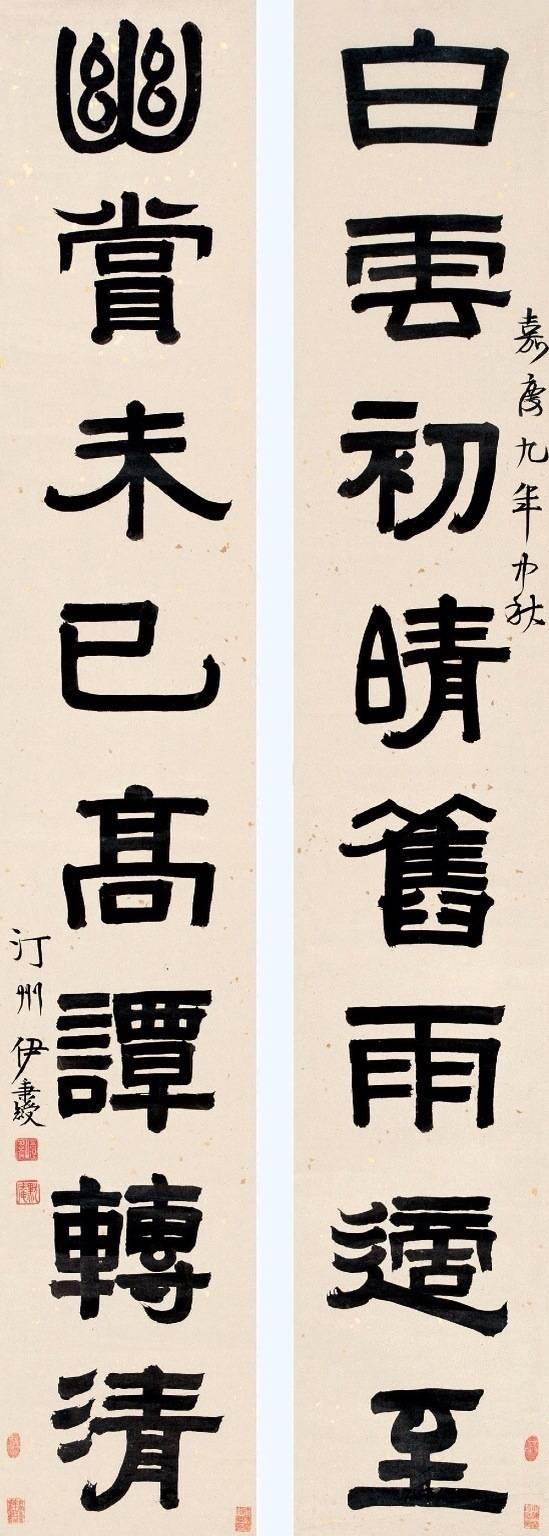 白雲初晴舊雨適至
嘉慶九年中秋
幽賞未已高譚轉清
汀州伊秉綬